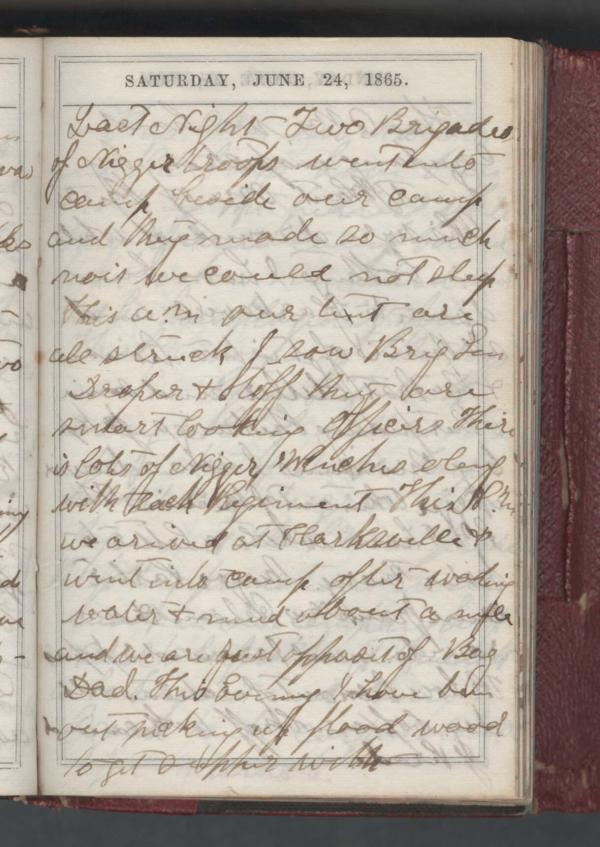 SATURDAY, JUNE 24, 1865.
Last Night Two Brigades
of Nigger troops went into
camp beside our camp
and they made so much
nois we could not sleep
this a.m our tent are
all struck I saw Brig Gen
Draper & staff they are
smart looking officers Thire
is lots of Nigger Wenches along
with Each Regiment This P.M
we arived at Clarksville &
went into camp after wading
water & mud about a mile
and we are just opposit of Bag
Dad. This Evening I have ben
out picking up flood wood
to get Supper with